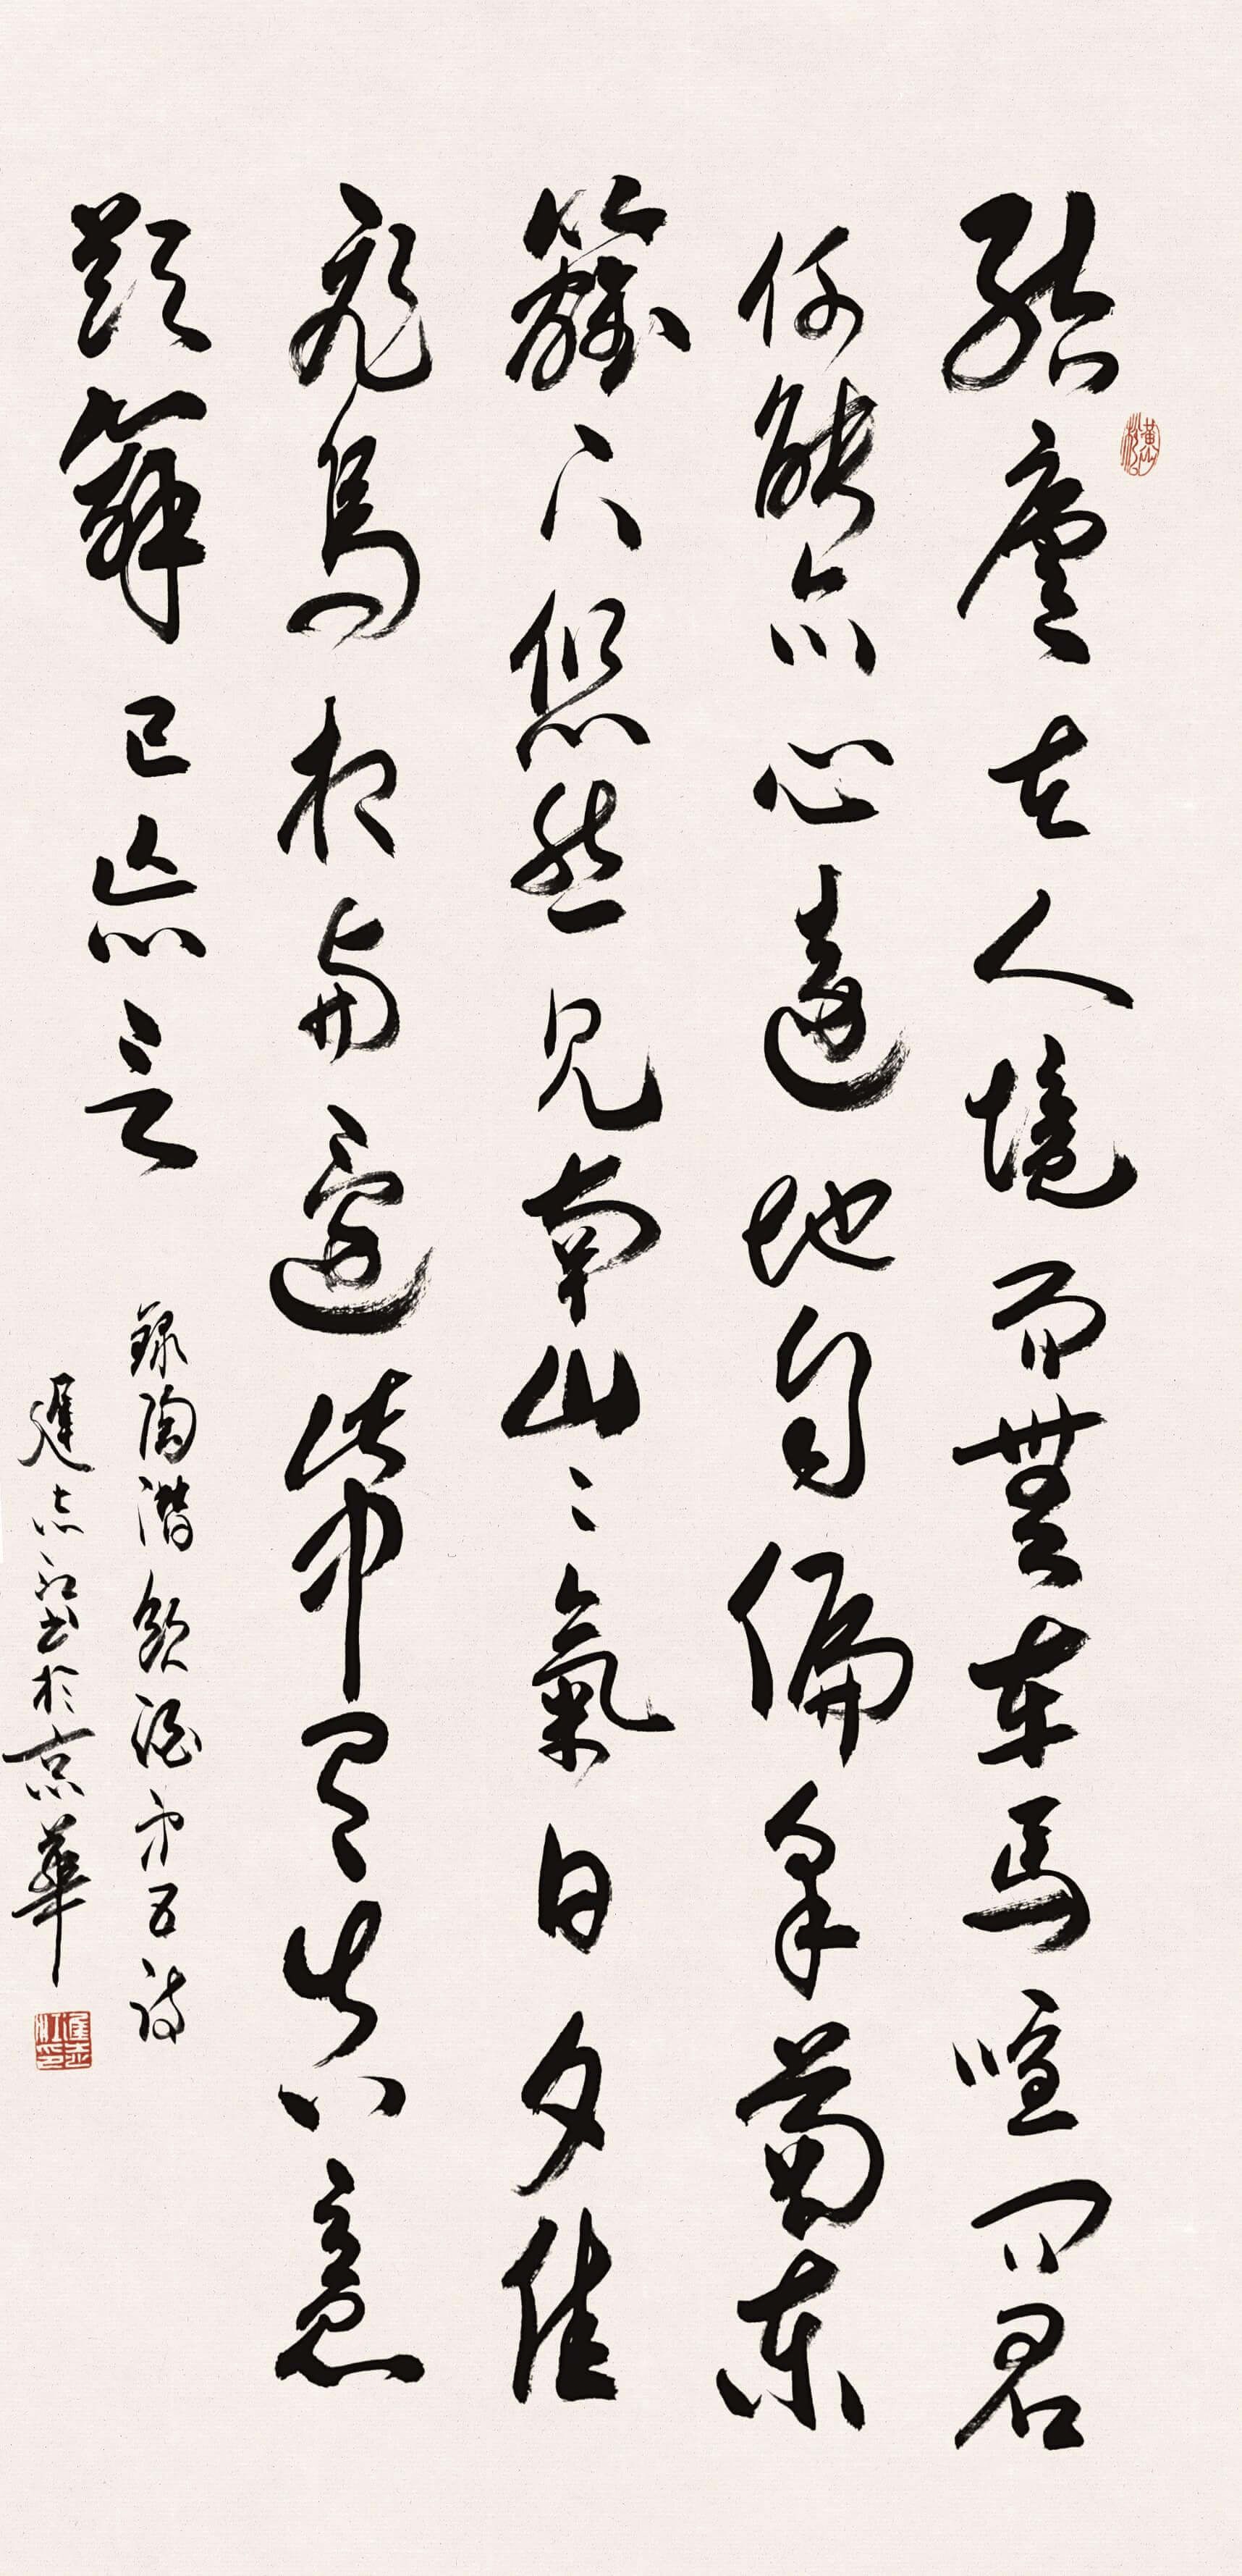 結廬在人境而無車馬喧問君
何能尔心遠地自偏采菊東
籬下悠然見南山々氣日夕佳
飛鳥相與還此中有真意
欲辯已忘言
錄陶潛飲酒第五詩
志江書於京華